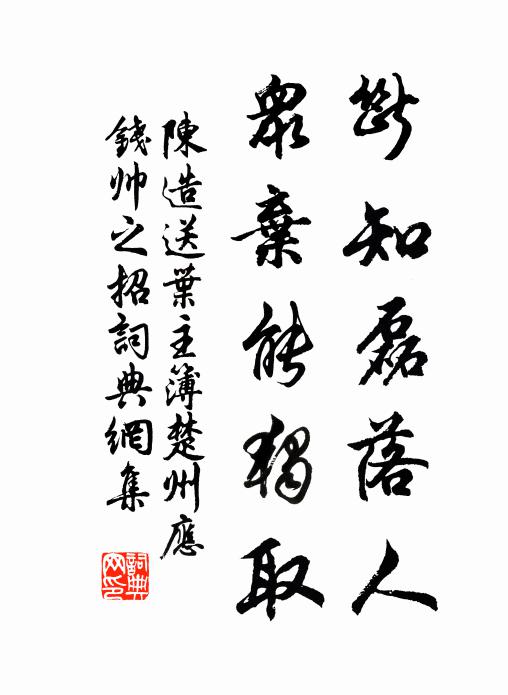 斷知磊落人
眾棄能獨取
陳造送葉主簿楚州應
錢帅之招詞典網集
詞典網印